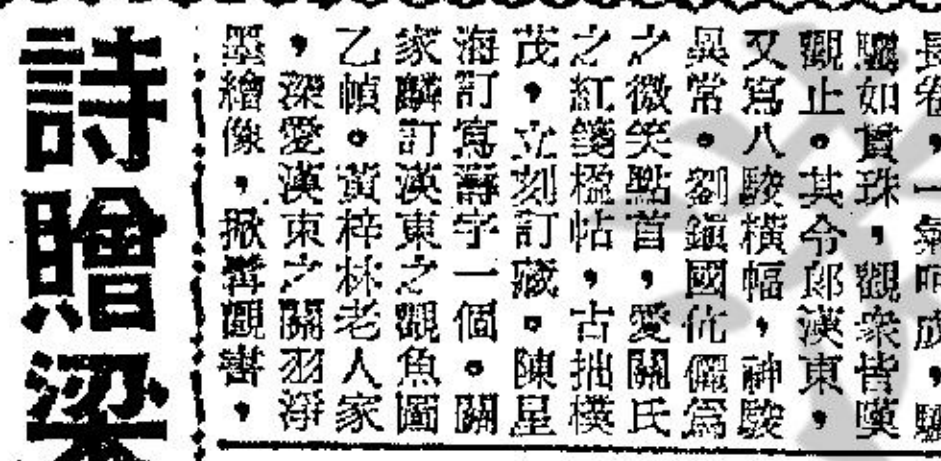 長卷，一氣呵成，驪
驪如貫珠，觀衆皆嘆
觀止。其令郎漢東，
又寫八駿橫幅，神駿
異常。劉鎮國伉儷爲
之微笑點首，愛關氏
之紅箋楹帖，古拙樸
茂，立刻訂藏。陳星
海訂寫壽字一個。關
家麟訂漢東之觀魚圖
乙幀。黃梓林老人家
，深愛漢東之關羽淨
墨繪像，掀髯觀書，
詩贈梁